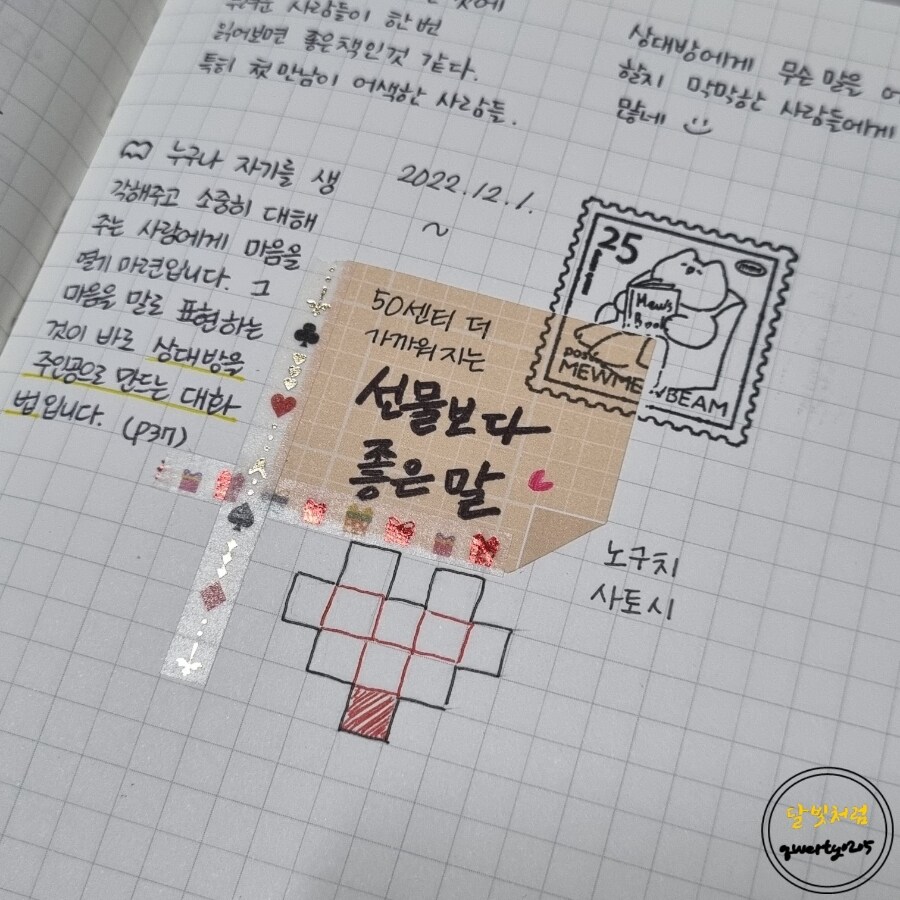 사람들이 한번
읽어보면 좋은책인것 같다.
특히 첫 만남이 어색한 사람들.
상대방에게 무슨 말을
할지 막막한 사람들에게
많네
누구나 자기를 생
각해주고 소중히 대해
주는 사람에게 마음을
열기 마련입니다. 그
마음을 말로 표현하는
것이 바로 상대방을
주인공으로 만드는 대화
법입니다. (p37)
2022.12.1.
~
25
Mew's
Book
post
MEWME
BEAM
50센티 더
가까워지는
선물보다
좋은 말
노구치
사토시
달빛처럼
qwerty1205